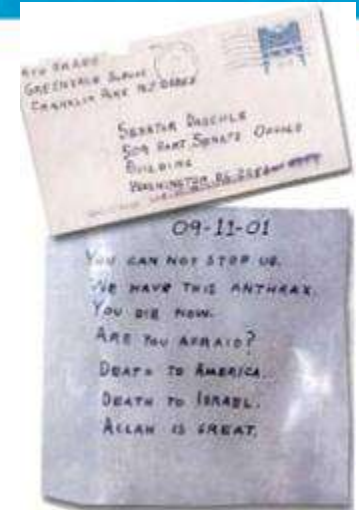 4TH GRADE
GREENDALE SCHOOL
FRANKLIN PARK NJ 08852
SENATOR DASCHLE
509 HART SENATE OFFICE
BUILDING
WASHINGTON D.C. 20510
09-11-01
YOU CAN NOT STOP US.
WE HAVE THIS ANTHRAX.
YOU DIE NOW.
ARE YOU AFRAID?
DEATH TO AMERICA.
DEATH TO ISRAEL.
ALLAH IS GREAT.